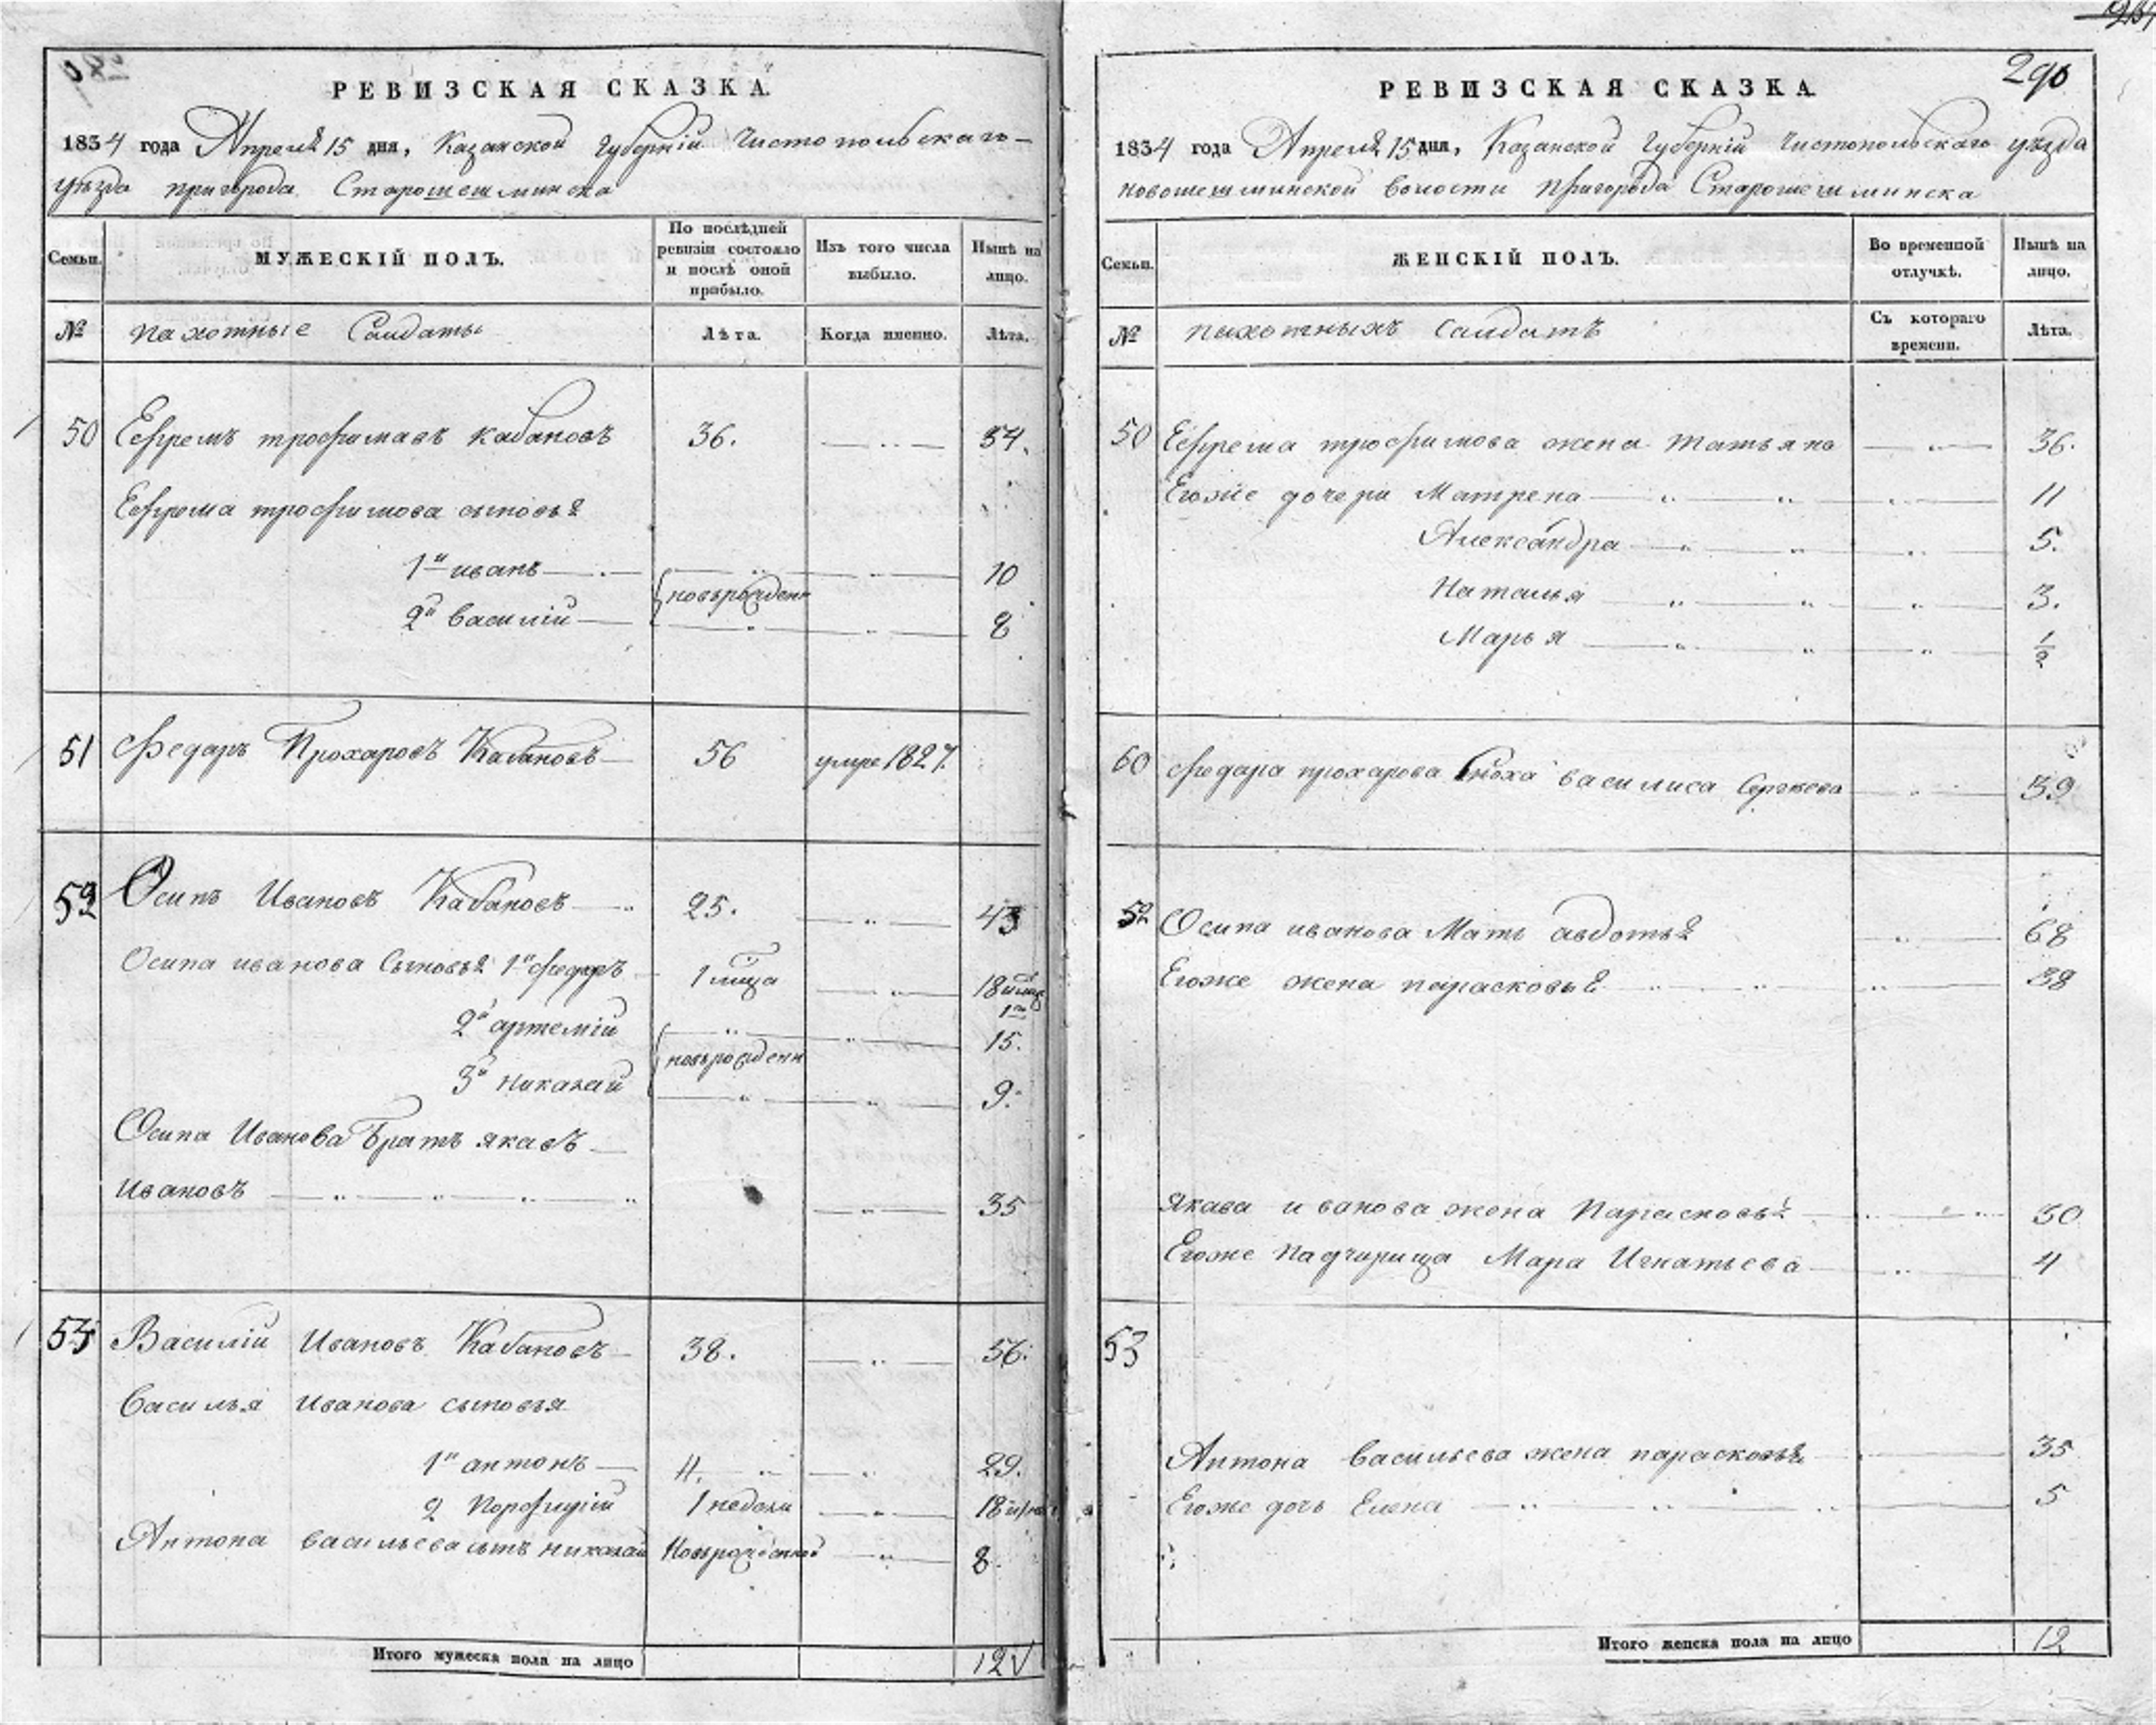 РЕВИЗСКАЯ СКАЗКА
1834 года Апреля 15 дня, Казанской Губернiи Чистопольскаго
уѣзда пригорода Старошешминска
Семьи.
МУЖЕСКIЙ ПОЛЪ.
По послѣдней ревизiи состояло и послѣ оной прибыло.
Изъ того числа выбыло.
Нынѣ на лицо.
№
пахотные Солдаты
Лѣта.
Когда именно.
Лѣта.
50 Ефремъ трофимавъ кабановъ 36. 54.
Ефрема трофимова сыновья
1й иванъ 10
новърожден
2й василiй 8
51 Федаръ Прохаровъ Кабановъ 56 умре 1827.
52 Осипъ Ивановъ Кабановъ 25. 43
Осипа иванова Сыновья 1й федаръ 1 мца 18
2й артемiй 15.
новърожденн
3й никалай 9.
Осипа Иванова Братъ якавъ
Ивановъ 35
53 Василiй Ивановъ Кабановъ 38. 56.
Василья Иванова сыновья
1й антонъ 11. 29.
2 Порфирiй 1 недели 18
Антона васильева сынъ никалай Новърожденной 8
Итого мужеска пола на лицо 12
290
РЕВИЗСКАЯ СКАЗКА
1834 года Апреля 15 дня, Казанской Губернiй Чистопольскаго уѣзда
новошешминской Волости Пригорода Старошешминска
Семьи.
ЖЕНСКIЙ ПОЛЪ.
Во временной отлучкѣ.
Нынѣ на лицо.
№
пахотныхъ солдатъ
Съ котораго времени.
Лѣта.
50 Ефрема трофимова жена татьяна 36.
Егоже дочери Матрена 11
Александра 5.
Наталья 3.
Марья 1/2
60 федара прохарова сноха василиса 59
52 Осипа иванова Мать авдотья 68
Егоже жена парасковья 38
якава иванова жена Парасковья 30
Егоже Падчирица Мара Игнатьева 4
53
Антона васильева жена парасковья 35
Егоже дочь Елена 5
Итого женска пола на лицо 12